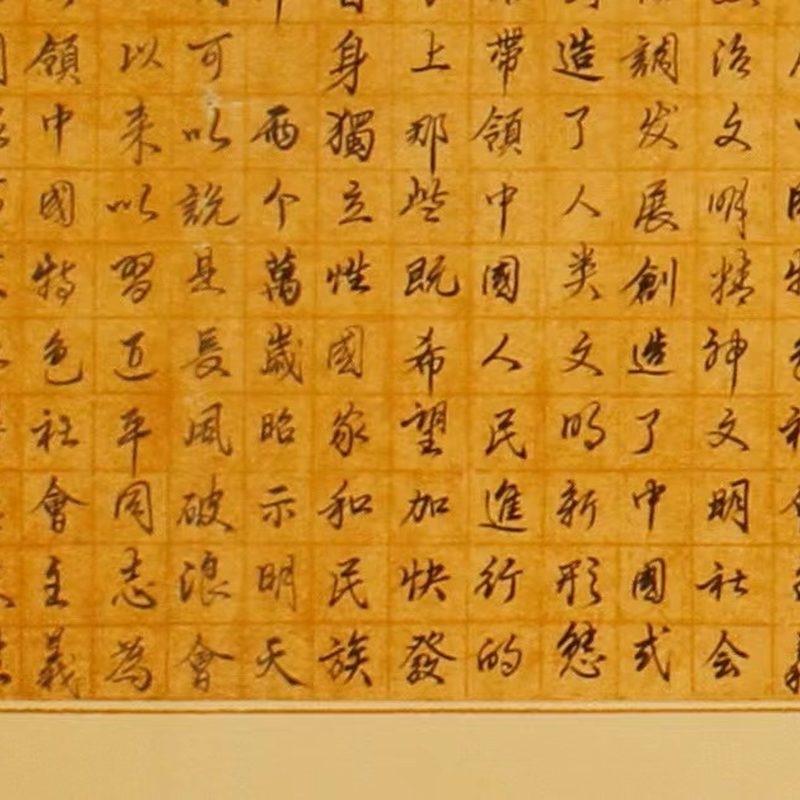 治文明精神文明社会
調发展創造了中國式
造了人类文明新形態
帶領中國人民進行的
上那些既希望加快發
身獨立性國家和民族
两个萬歲昭示明天
可以說是長風破浪會
以来以習近平同志為
領中國特色社會主義